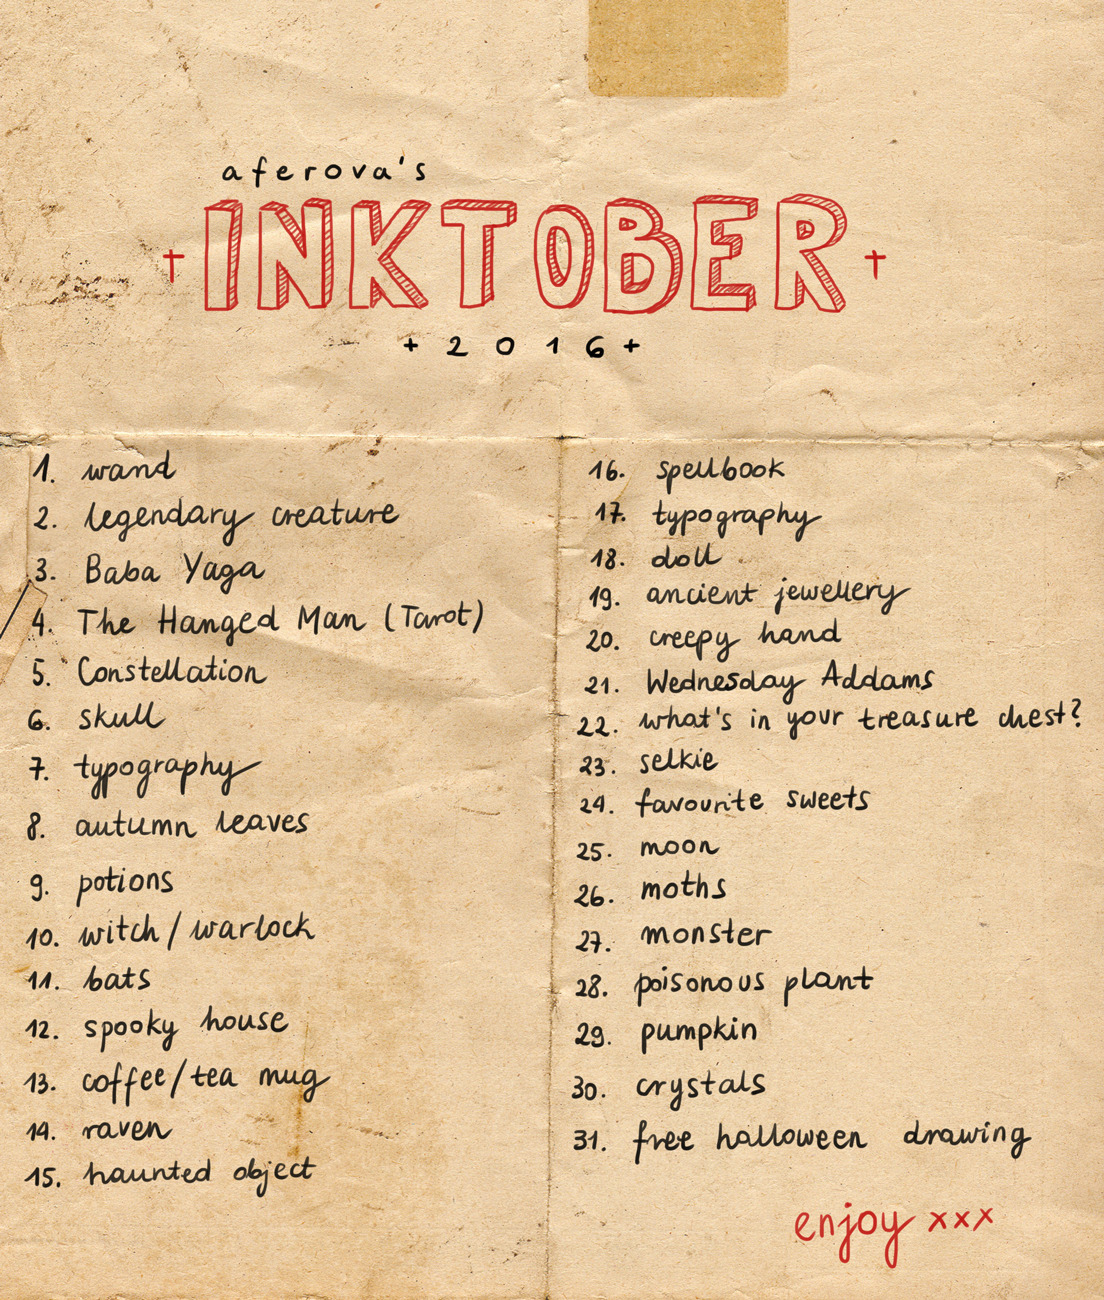 aferova's
INKTOBER
+ 2016 +
1. wand
2. legendary creature
3. Baba Yaga
4. The Hanged Man (Tarot)
5. Constellation
6. skull
7. typography
8. autumn leaves
9. potions
10. witch / warlock
11. bats
12. spooky house
13. coffee/tea mug
14. raven
15. haunted object
16. spellbook
17. typography
18. doll
19. ancient jewellery
20. creepy hand
21. Wednesday Addams
22. what's in your treasure chest?
23. selkie
24. favourite sweets
25. moon
26. moths
27. monster
28. poisonous plant
29. pumpkin
30. crystals
31. free halloween drawing
enjoy xxx